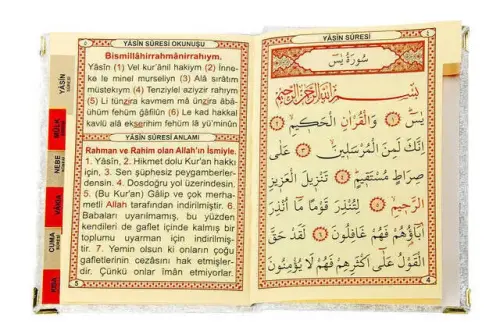 YÂSİN SÛRESİ OKUNUŞU
Bismillâhirrahmânirrahıym.
Yâsîn (1) Vel kur'ânil hakiym (2) İnne-
ke le minel murseliyn (3) Alâ sırâtım
müstekıym (4) Tenziylel aziyzir rahıym
(5) Li tünzira kavmem mâ ünzira âbâ-
ühüm fehüm ğâfilûn (6) Le kad hakkal
kavlü alâ ekserihim fehüm lâ yü'minûn
YÂSİN SÛRESİ ANLAMI
Rahman ve Rahim olan Allah'ın İsmiyle.
1. Yâsîn. 2. Hikmet dolu Kur'an hakkı
için, 3. Sen şüphesiz peygamberler-
densin. 4. Dosdoğru yol üzerindesin.
5. (Bu Kur'an) Gâlip ve çok merha-
metli Allah tarafından indirilmiştir. 6.
Babaları uyarılmamış, bu yüzden
kendileri de gaflet içinde kalmış bir
toplumu uyarman için indirilmiş-
tir. 7. Yemin olsun ki onların çoğu
gafletlerinin cezasını hak etmişler-
dir. Çünkü onlar iman etmiyorlar.
5
YÂSİN
SÛRESİ
MÜLK
NEBE
VÂKIA
CUMA
KISA
YÂSİN SÛRESİ
سُورَةُ يٰسٓ
بِسْمِ اللّٰهِ الرَّحْمٰنِ الرَّحِيمِ
يٰسٓ ﴿١﴾ وَالْقُرْاٰنِ الْحَكِيمِ ﴿٢﴾
اِنَّكَ لَمِنَ الْمُرْسَلِينَ ﴿٣﴾ عَلٰى
صِرَاطٍ مُسْتَقِيمٍ ﴿٤﴾ تَنْزِيلَ الْعَزِيزِ
الرَّحِيمِ ﴿٥﴾ لِتُنْذِرَ قَوْمًا مَٓا اُنْذِرَ
اٰبَٓاؤُهُمْ فَهُمْ غَافِلُونَ ﴿٦﴾ لَقَدْ حَقَّ
الْقَوْلُ عَلٰٓى اَكْثَرِهِمْ فَهُمْ لَا يُؤْمِنُونَ
4